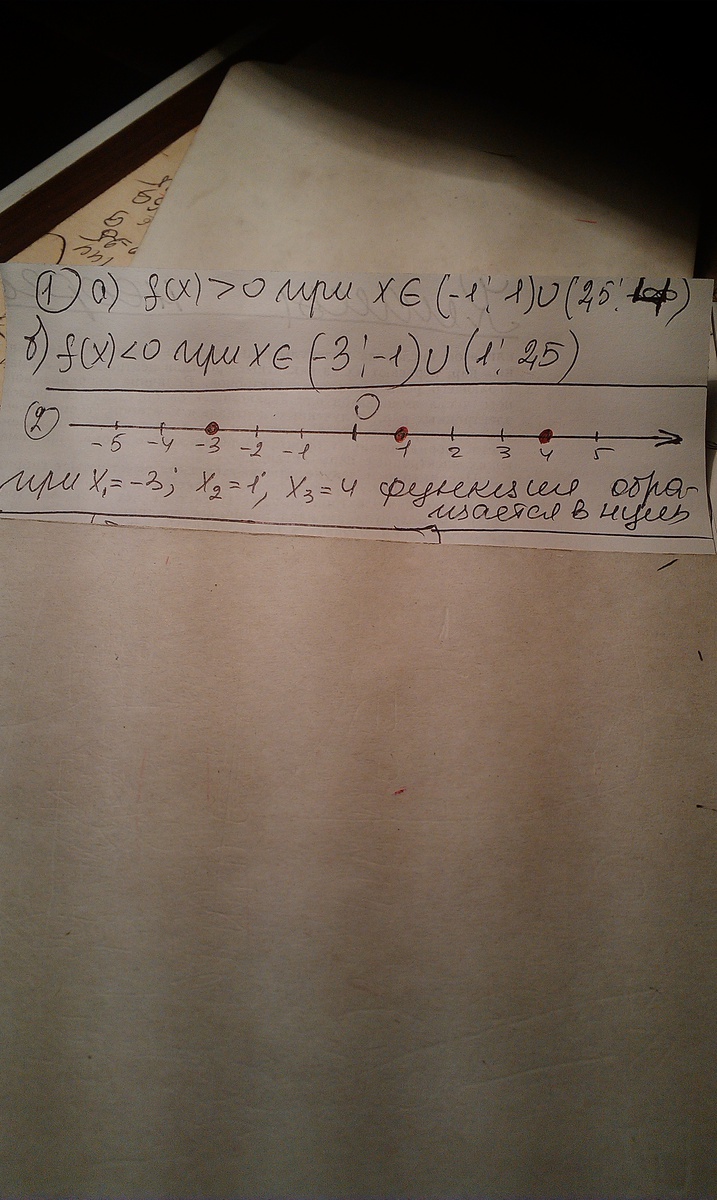 1 а) f(x)>0 при x∈(-1; 1)∪(25;
б) f(x)<0 при x∈(-3;-1)∪(1; 25)
2 0
-5 -4 -3 -2 -1 1 2 3 4 5
при x₁=-3; x₂=1; x₃=4 функция обра-
щается в нуль